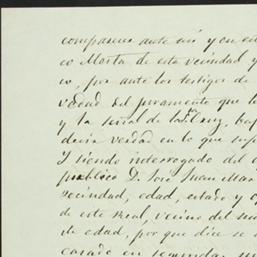 comparece ante mi y en
co Morta de esta vecindad y
o, por ante los testigos de
vedad del juramento que
y la señal de la Cruz, baj
decir verdad en lo que
Y siendo interrogado del
publico D. José Juan Mar
vecindad, edad, estado y
de este Real, vecino del
de edad, por que dice
casado en segundas